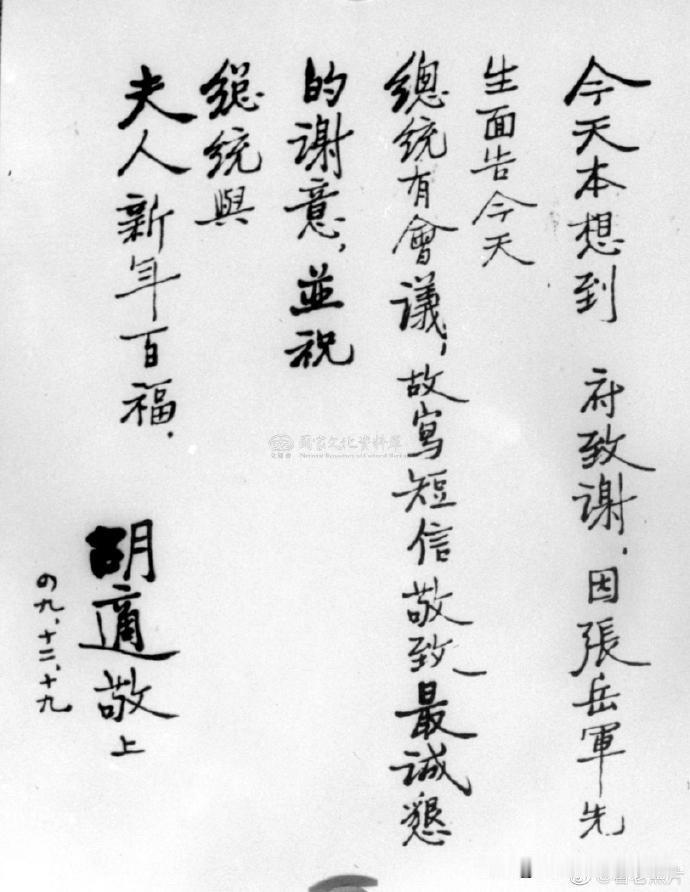 今天本想到　府致謝，因張岳軍先
生面告今天
總統有會議，故寫短信敬致最誠懇
的谢意，並祝
總統與
夫人新年百福．
胡適敬上
四九．十二．十九
國家文化資料庫